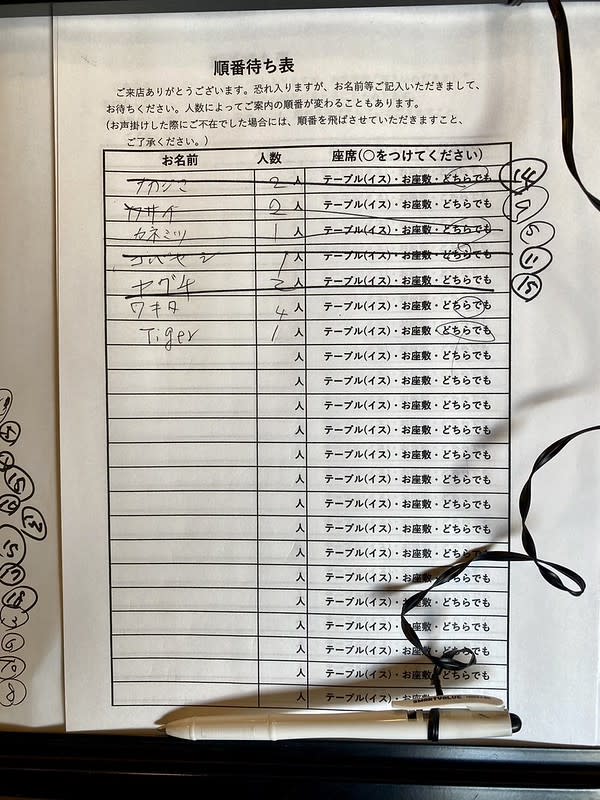 順番待ち表
ご来店ありがとうございます。恐れ入りますが、お名前等ご記入いただきまして、
お待ちください。人数によってご案内の順番が変わることもあります。
(お声掛けした際にご不在でした場合には、順番を飛ばさせていただきますこと、
ご了承ください。)
お名前 人数 座席(○をつけてください)
ナカジマ 2人 テーブル(イス)・お座敷・どちらでも 14
2人 テーブル(イス)・お座敷・どちらでも
カネミツ 1人 テーブル(イス)・お座敷・どちらでも 5
コバヤシ 1人 テーブル(イス)・お座敷・どちらでも 11
ヤギ 2人 テーブル(イス)・お座敷・どちらでも 15
ワキタ 4人 テーブル(イス)・お座敷・どちらでも
Tiger 1人 テーブル(イス)・お座敷・どちらでも
人 テーブル(イス)・お座敷・どちらでも
人 テーブル(イス)・お座敷・どちらでも
人 テーブル(イス)・お座敷・どちらでも
人 テーブル(イス)・お座敷・どちらでも
人 テーブル(イス)・お座敷・どちらでも
人 テーブル(イス)・お座敷・どちらでも
人 テーブル(イス)・お座敷・どちらでも
人 テーブル(イス)・お座敷・どちらでも
人 テーブル(イス)・お座敷・どちらでも
人 テーブル(イス)・お座敷・どちらでも
人 テーブル(イス)・お座敷・どちらでも
人 テーブル(イス)・お座敷・どちらでも
人 テーブル(イス)・お座敷・どちらでも
人 テーブル(イス)・お座敷・どちらでも
人 テーブル(イス)・お座敷・どちらでも
13